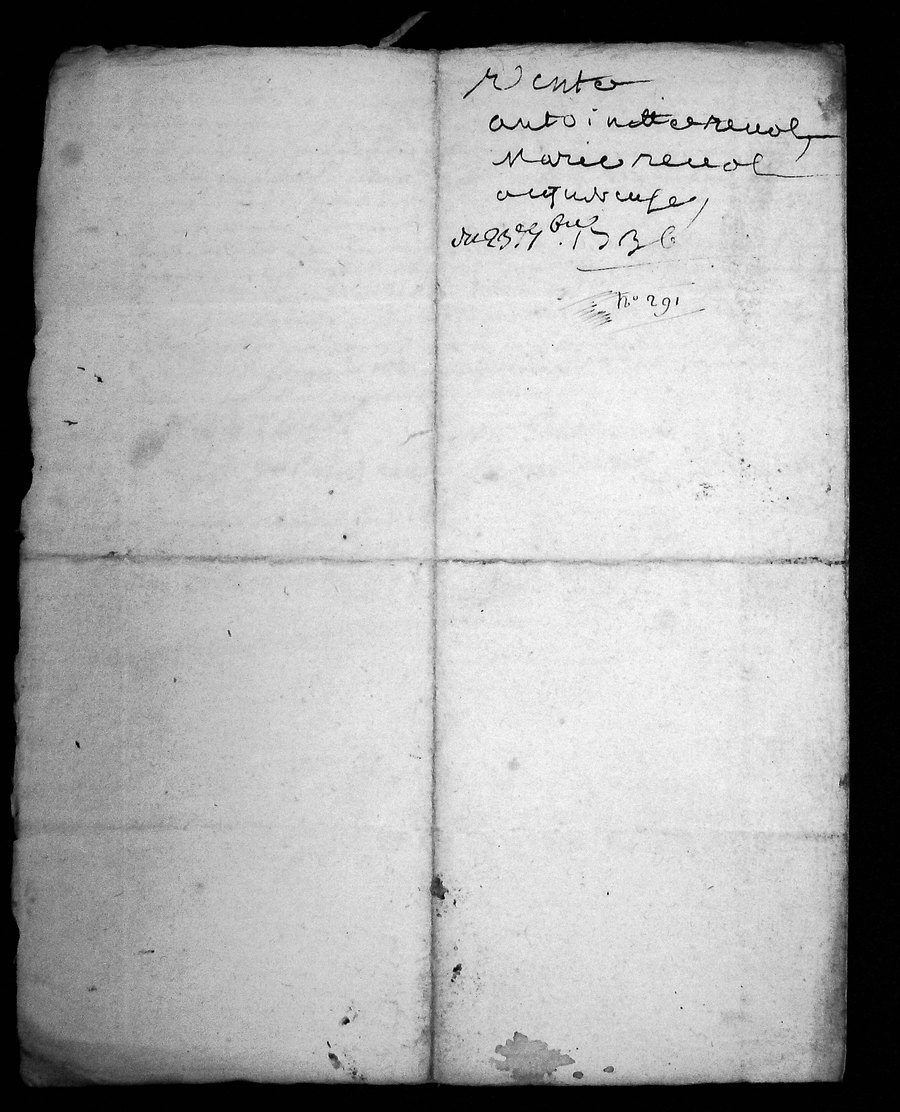 Vente
antoinette revol,
Marie revol
acqureuse,
du 23e 7bre 1736
No 291